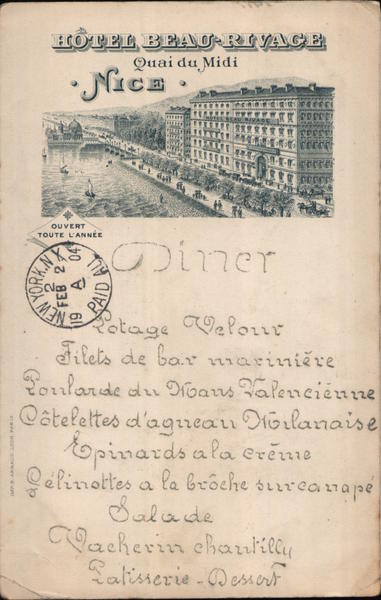 HÔTEL BEAU-RIVAGE
Quai du Midi
· NICE ·
OUVERT
TOUTE L'ANNÉE
NEW YORK, N.Y.
2
FEB 2
A
1904
PAID ALL
Diner
Potage Velour
Filets de bar marinière
Poularde du Mans Valenciènne
Côtelettes d'agneau Milanaise
Epinards a la crême
Gélinottes a la brôche sur canapé
Salade
Vacherin chantilly
Patisserie - Dessert